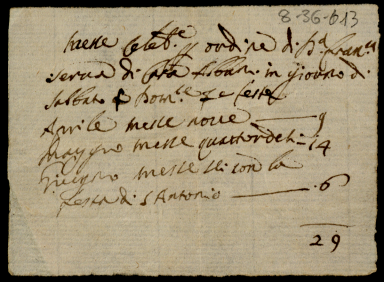 8-36-613
Messe Celeb.e p ordine di
serva di Casa in giorno di
Sabbato
Aprile messe nove — 9
Maggio messe quattordeci — 14
Giugno messe sei con la
festa di S Antonio — 6
29